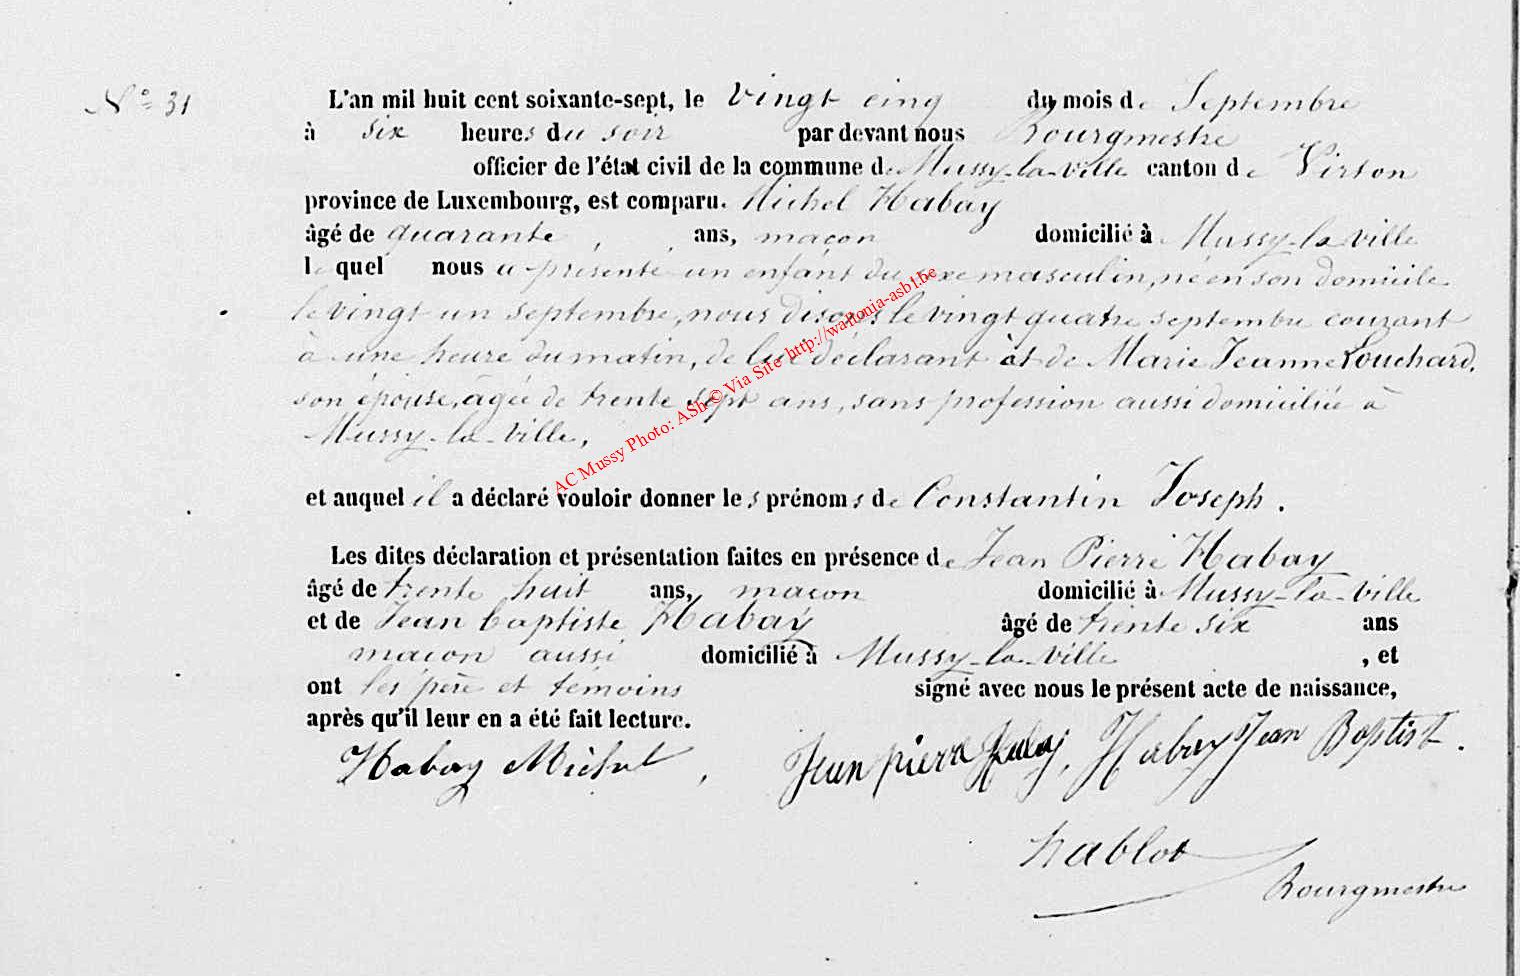 N° 31
L'an mil huit cent soixante-sept, le vingt cinq du mois de Septembre
à six heures du soir par devant nous Bourgmestre
officier de l'état civil de la commune de Mussy-la-ville canton de Virton
province de Luxembourg, est comparu. Michel Habay
âgé de quarante, ans, maçon domicilié à Mussy-la ville
le quel nous a présenté un enfant du sexe masculin, né en son domicile
le vingt un septembre, nous disons le vingt quatre septembre courant
à une heure du matin, de lui déclarant et de Marie Jeanne Louchard,
son épouse, âgée de trente sept ans, sans profession aussi domiciliée à
Mussy-la-ville,
et auquel il a déclaré vouloir donner les prénoms de Constantin Joseph.
Les dites déclaration et présentation faites en présence de Jean Pierre Habay
âgé de trente huit ans, maçon domicilié à Mussy-la-ville
et de Jean baptiste Habay âgé de trente six ans
maçon aussi domicilié à Mussy-la-ville, et
ont les père et témoins signé avec nous le présent acte de naissance,
après qu'il leur en a été fait lecture.
Habay Michel, Jean pierre Habay, Habay Jean Baptist.
hablot
Bourgmestre
AC Mussy Photo: ASh © Via Site http://wallonia-asbl.be